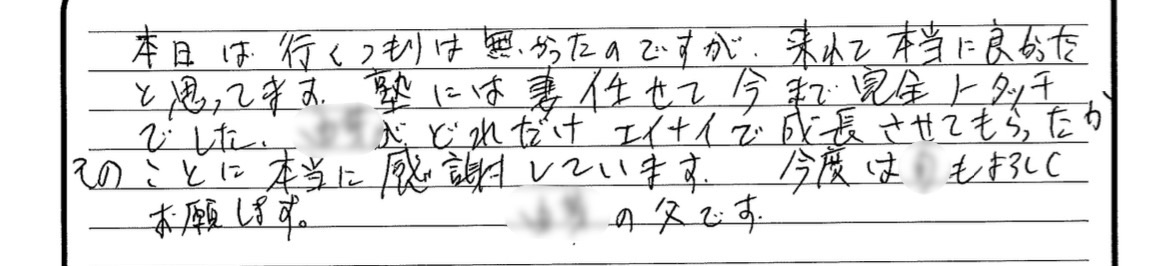 本日は行くつもりは無かったのですが、来れて本当に良かった
と思ってます。塾には妻任せて今まで完全ノータッチ
でした。がどれだけエイナイで成長させてもらったか
そのことに本当に感謝しています。今度はもよろしく
お願します。の父です。